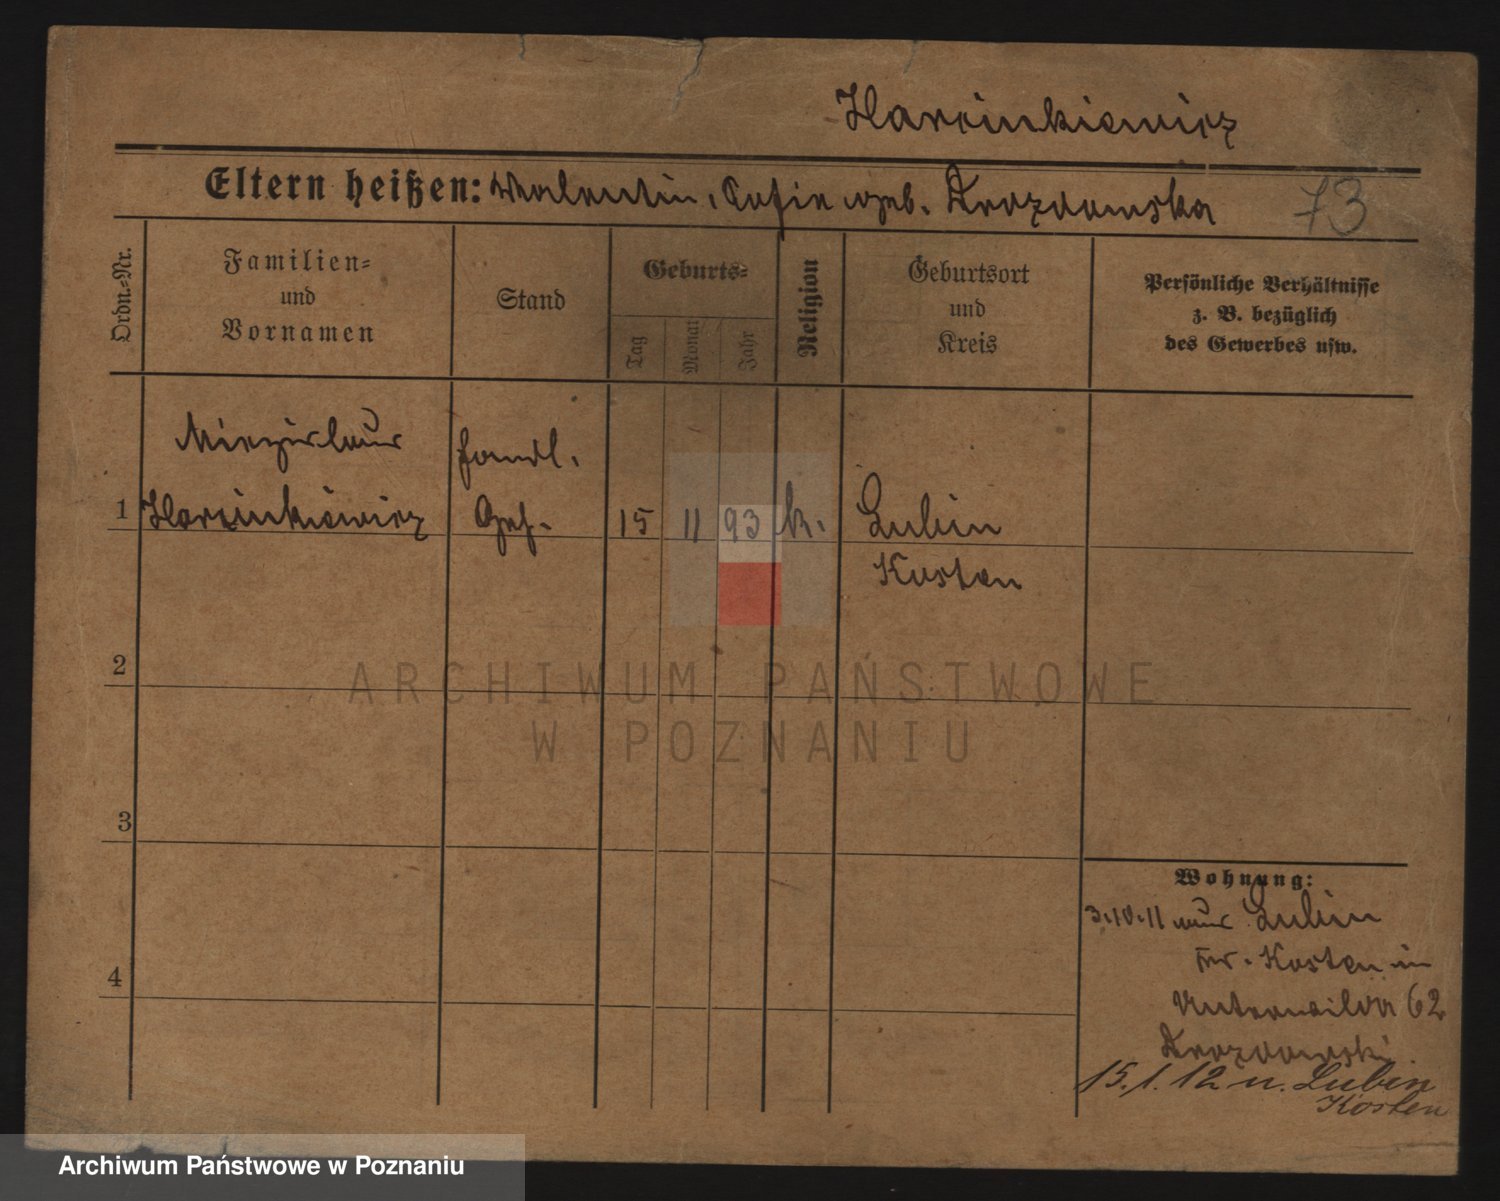 Marcinkiewicz
Eltern heißen: Valentin, Sofie geb. Drozdowska 73
Ordn.-Nr.
Familien-
und
Vornamen
Stand
Geburts-
Tag
Monat
Jahr
Religion
Geburtsort
und
Kreis
Persönliche Verhältnisse
z. B. bezüglich
des Gewerbes usw.
Miezislaus Handl.
1 Marcinkiewicz Geh. 15 11 93 k. Lubin
Kosten
2
ARCHIWUM PAŃSTWOWE
W POZNANIU
3
Wohnung:
3.10.11 aus Lubin
Kosten in
4
Unterwilda 62
Drozdowski
15.1.12 n. Lubin
Kosten
Archiwum Państwowe w Poznaniu